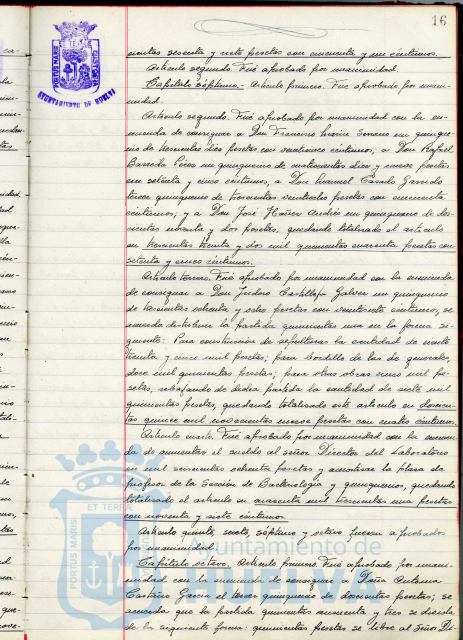 16
cientas sesenta y siete pesetas con cincuenta y un céntimos.
Artículo segundo. Fué aprobado por unanimidad.
Capítulo séptimo.- Artículo primero. Fué aprobado por unani-
midad
Artículo segundo. Fué aprobado por unanimidad con la en-
mienda de consignar a Don Francisco Serrano un quinque-
nio de trescientas diez pesetas con veinticinco céntimos, a Don Rafael
Barreda Pérez un quinquenio de cuatrocientas diez y nueve pesetas
con setenta y cinco céntimos, a Don Manuel Casado Garrido
tercer quinquenio de trescientas veintiseis pesetas con cincuenta
céntimos; y a Don José Andrés un quinquenio de dos-
cientas noventa y dos pesetas, quedando totalizado el artículo
en trescientas treinta y dos mil quinientas cuarenta pesetas con
setenta y cinco céntimos.
Artículo tercero. Fué aprobado por unanimidad con la enmienda
de consignar a Don Isidoro Castilleja Galvez un quinquenio
de trescientas ochenta y ocho pesetas con veintisiete céntimos, se
acuerda distribuir la partida quinientas una en la forma si-
guiente: Para construcción de sepulturas la cantidad de veinte
y cinco mil pesetas; para bordillo de las de generales,
doce mil quinientas pesetas; para otras obras cinco mil pe-
setas, rebajando de dicha partida la cantidad de siete mil
quinientas pesetas, quedando totalizado este artículo en doscien-
tas quince mil novecientas nueve pesetas con cuatro céntimos.
Artículo cuarto. Fué aprobado por unanimidad con la enmien-
da de aumentar el sueldo al señor Director del Laboratorio
en mil seiscientas ochenta pesetas y amortizar la plaza de
profesor de la Sección de Bacteriología y quinquenios, quedando
totalizado el artículo en cuarenta mil trescientas una pesetas
con noventa y siete céntimos.
Artículo quinto, sexto, séptimo y octavo fueron aprobados
por unanimidad.
Capítulo octavo. Artículo primero. Fué aprobado por unani-
midad con la enmienda de consignar a Doña Antonia
Castaño García el tercer quinquenio de doscientas pesetas; se
acuerda que la partida quinientas cincuenta y tres se divida
de la siguiente forma: quinientas pesetas se libre al Señor Di-
AYUNTAMIENTO DE HUELVA
Ayuntamiento de
PORTUS MARIS ET TERR